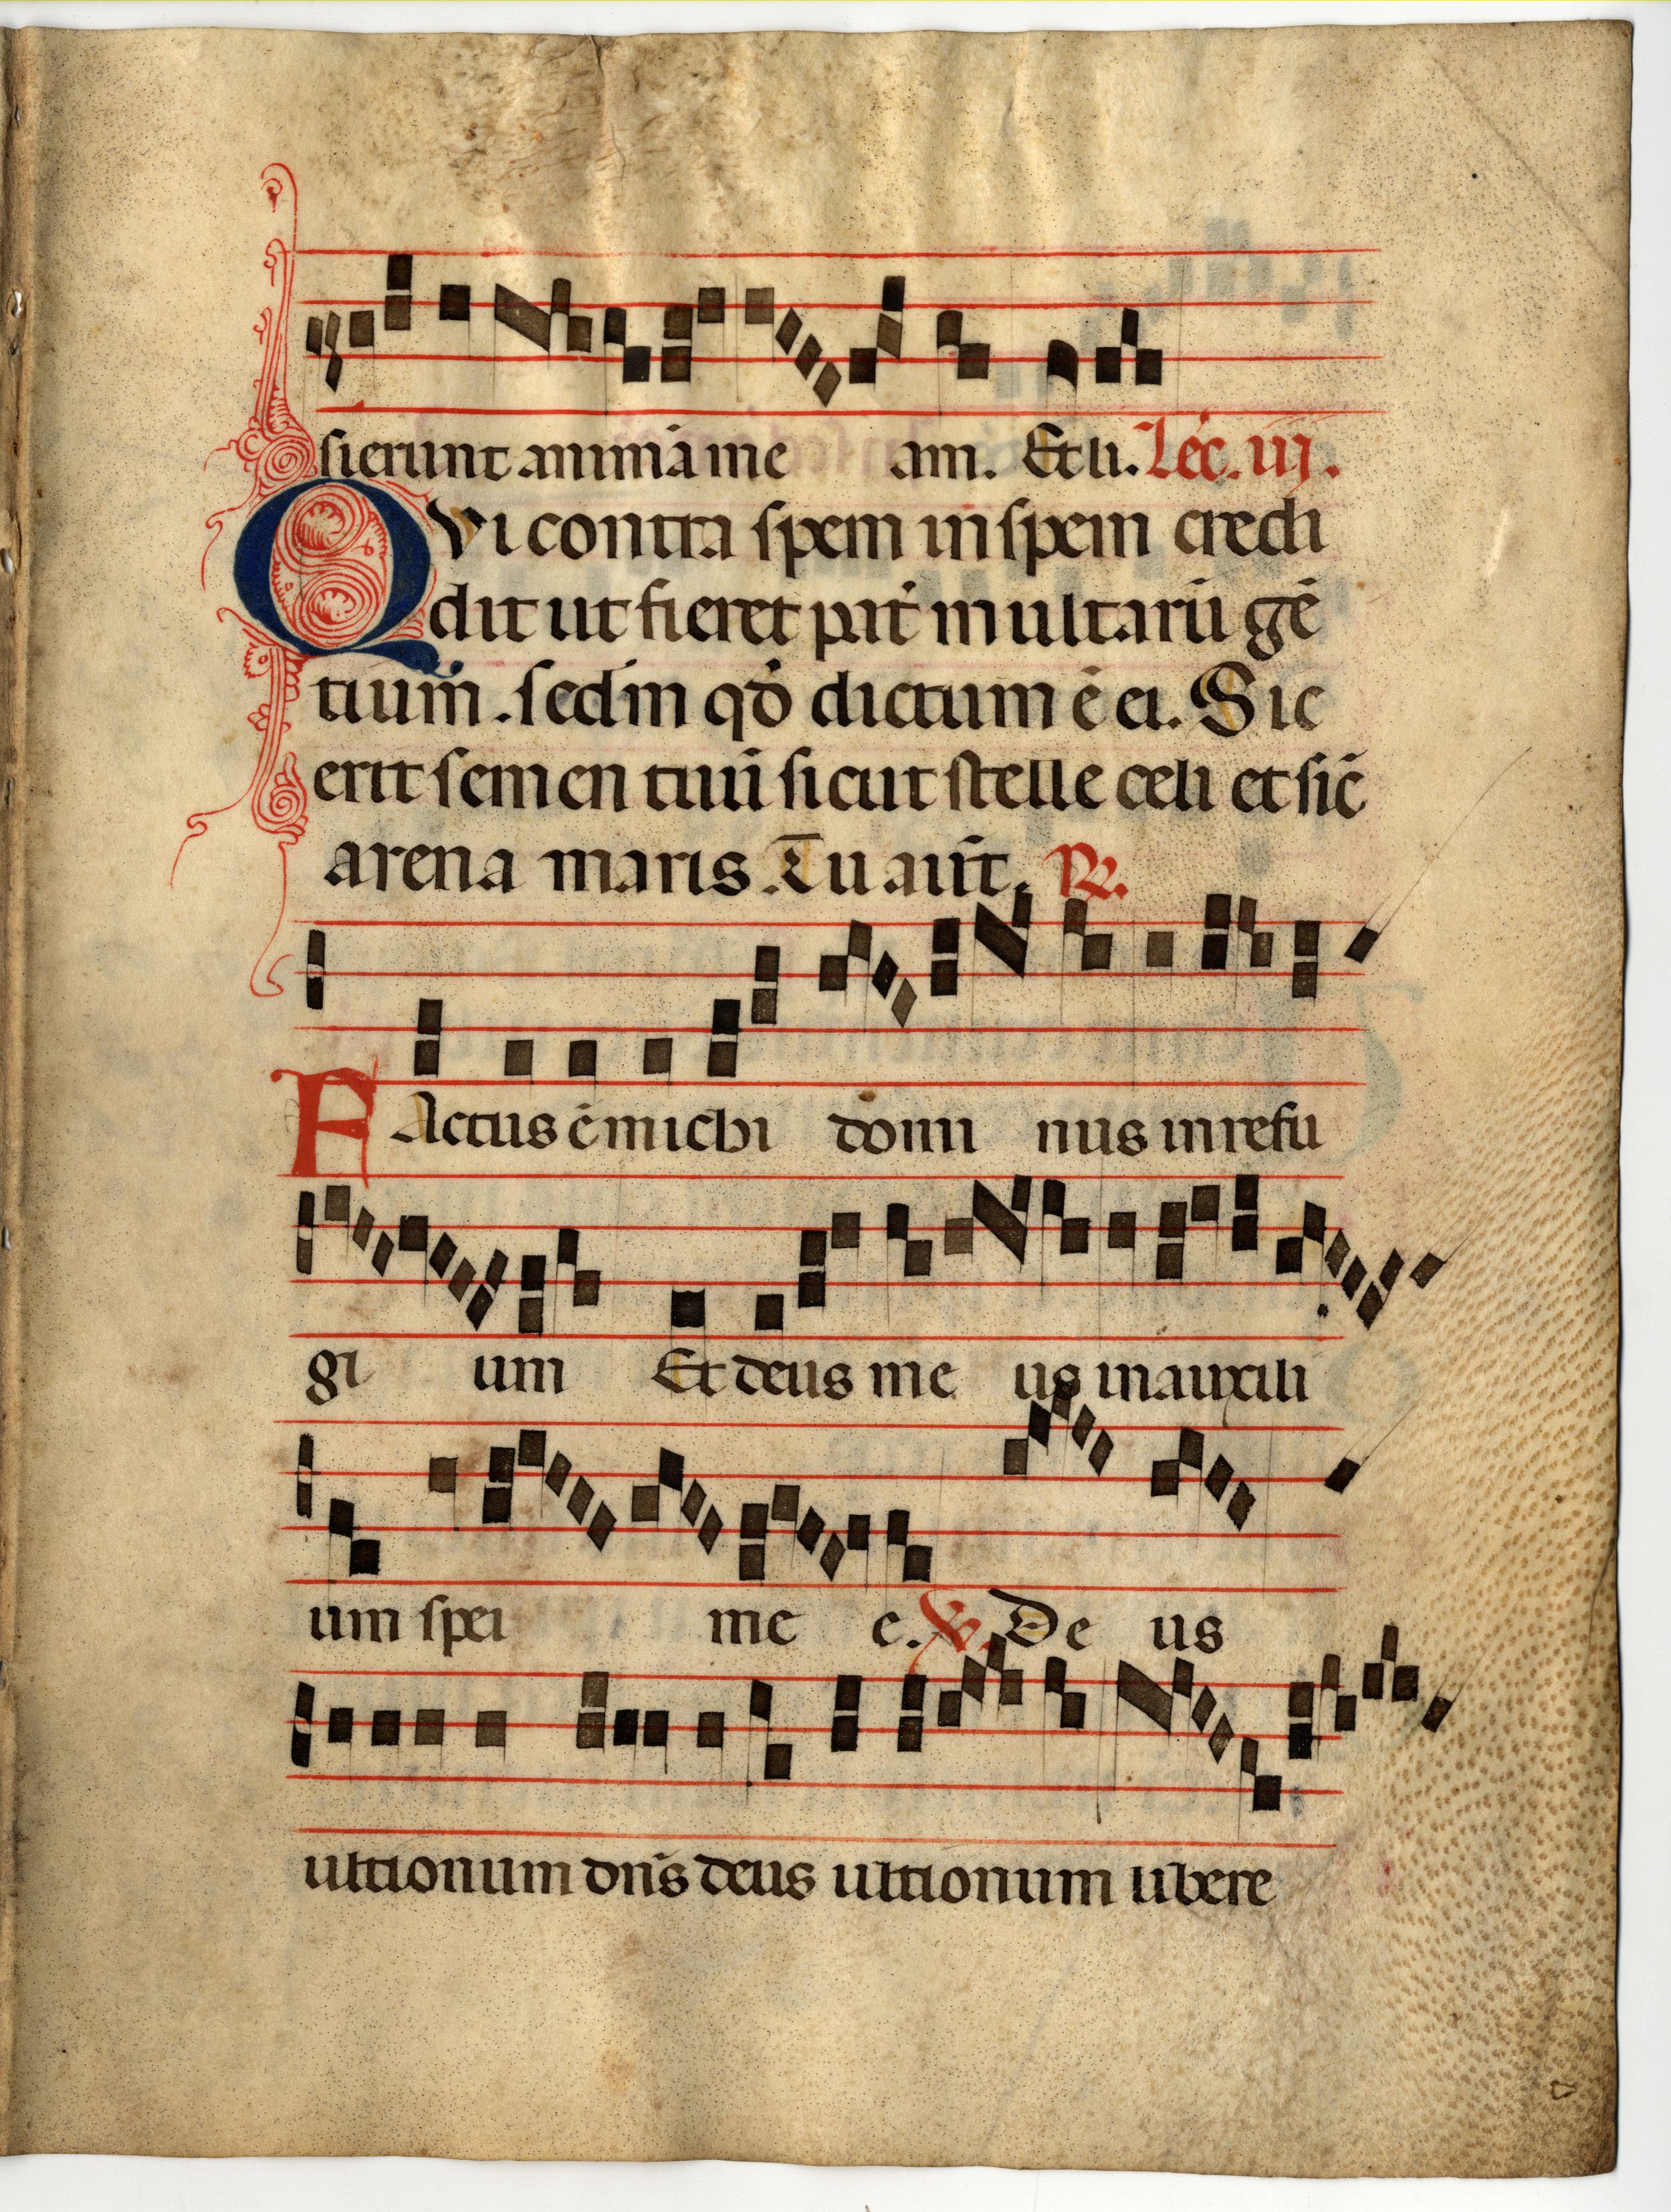 sierunt animā me am. Et li. Lec̄. iij.
Qvi contra spem in spem credi
dit ut fieret pat̄ multarū gē
tium. sedm̄ qd̄ dictum ē ei. Sic
erit semen tuū sicut stelle celi et sic̄
arena maris. Tu aut̄. R.
FActus ē michi domi nus in refu
gi um Et deus me us in auxili
um spei me e. V. De us
ultionum dn̄s deus ultionum libere